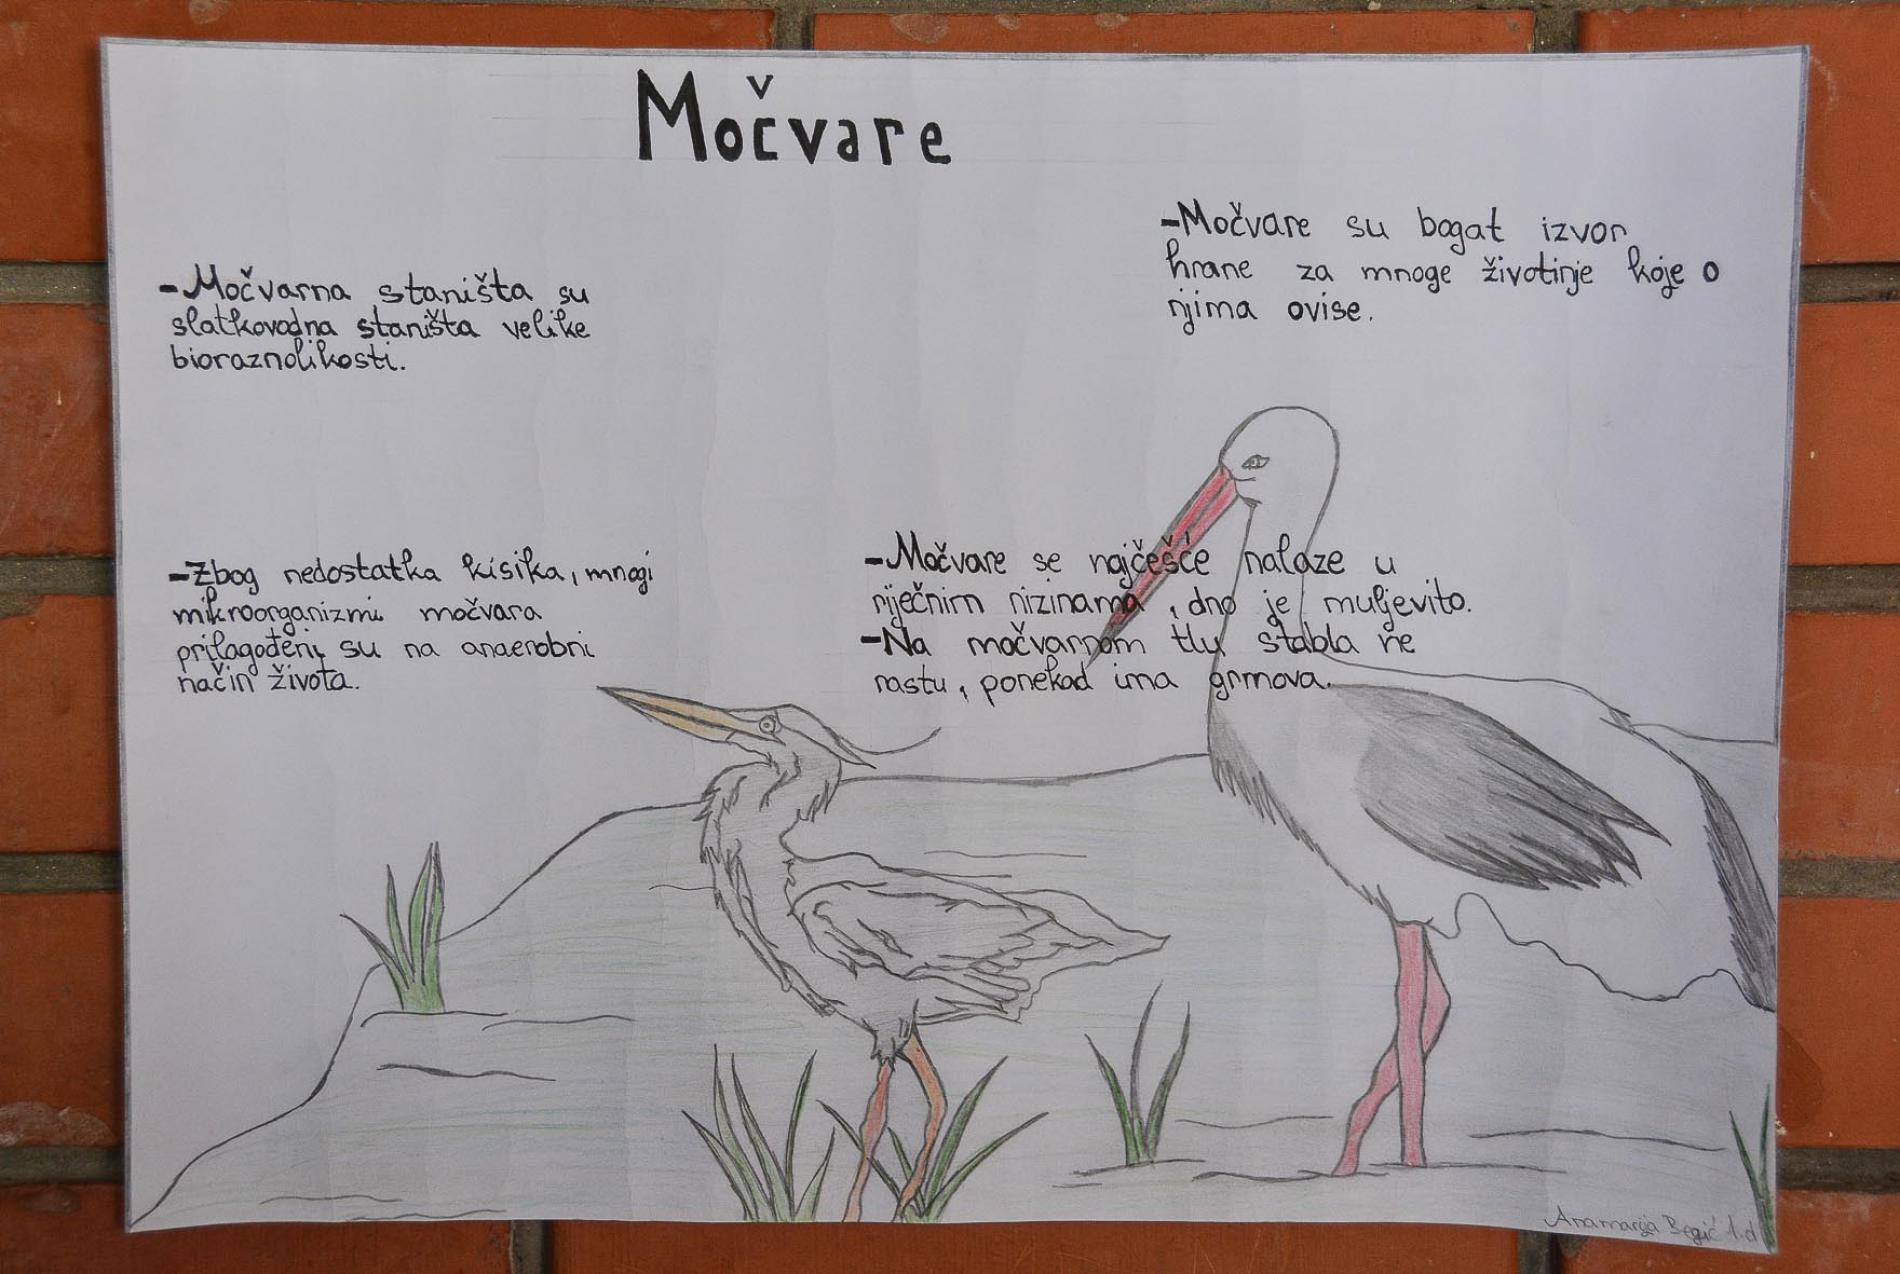 Močvare
-Močvarna staništa su
slatkovodna staništa velike
bioraznolikosti.
-Močvare su bogat izvor
hrane za mnoge životinje koje o
njima ovise.
-Zbog nedostatka kisika, mnogi
mikroorganizmi močvara
prilagođeni su na anaerobni
način života.
-Močvare se najčešće nalaze u
riječnim nizinama, dno je muljevito.
-Na močvarnom tlu stabla ne
rastu, ponekad ima grmova.
Anamarija Begić 1.d